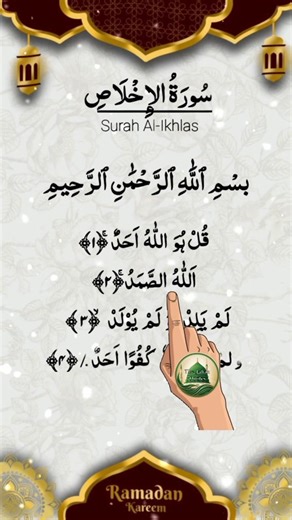 سُورَةُ الإِخْلَاصِ
Surah Al-Ikhlas
بِسْمِ ٱللَّهِ ٱلرَّحْمَٰنِ ٱلرَّحِيمِ
قُلْ هُوَ اللّٰهُ اَحَدٌۚ ﴿۱﴾
اَللّٰهُ الصَّمَدُۚ ﴿۲﴾
لَمْ يَلِدْ وَلَمْ يُوْلَدْۙ ﴿۳﴾
وَلَمْ كُفُوًا اَحَدٌ ﴿۴﴾
Ramadan
Kareem